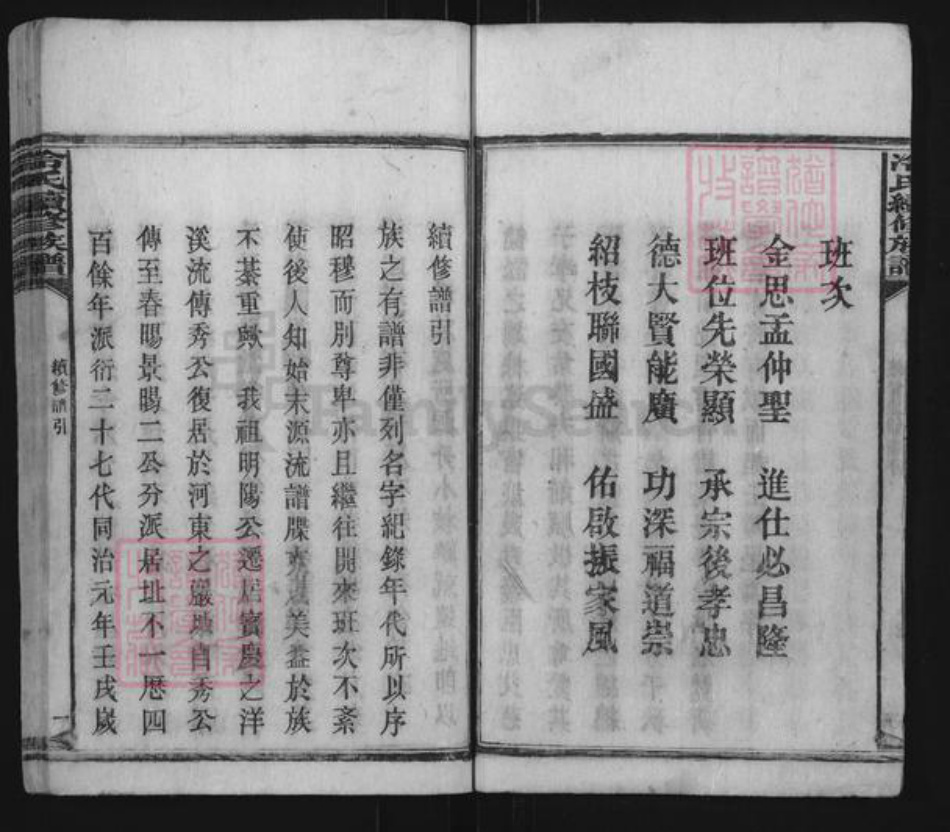 冷氏續修族譜
班次
金思孟仲聖　進仕必昌隆
班位先榮顯　承宗後孝忠
德大賢能廣　功深福道崇
紹枝聯國盛　佑啟振家風
續修譜引
族之有譜非僅列名字紀錄年代所以序
昭穆而別尊卑亦且繼往開來班次不紊
使後人知始末源流譜牒美益於族
不綦重歟我祖明陽公遷居寶慶之洋
溪流傳秀公復居於河東之巖塘自秀公
傳至春暘景暘二公分派居址不一歷四
百餘年派衍二十七代同治元年壬戌歲
冷氏續修族譜
續修譜引
一
FamilySearch